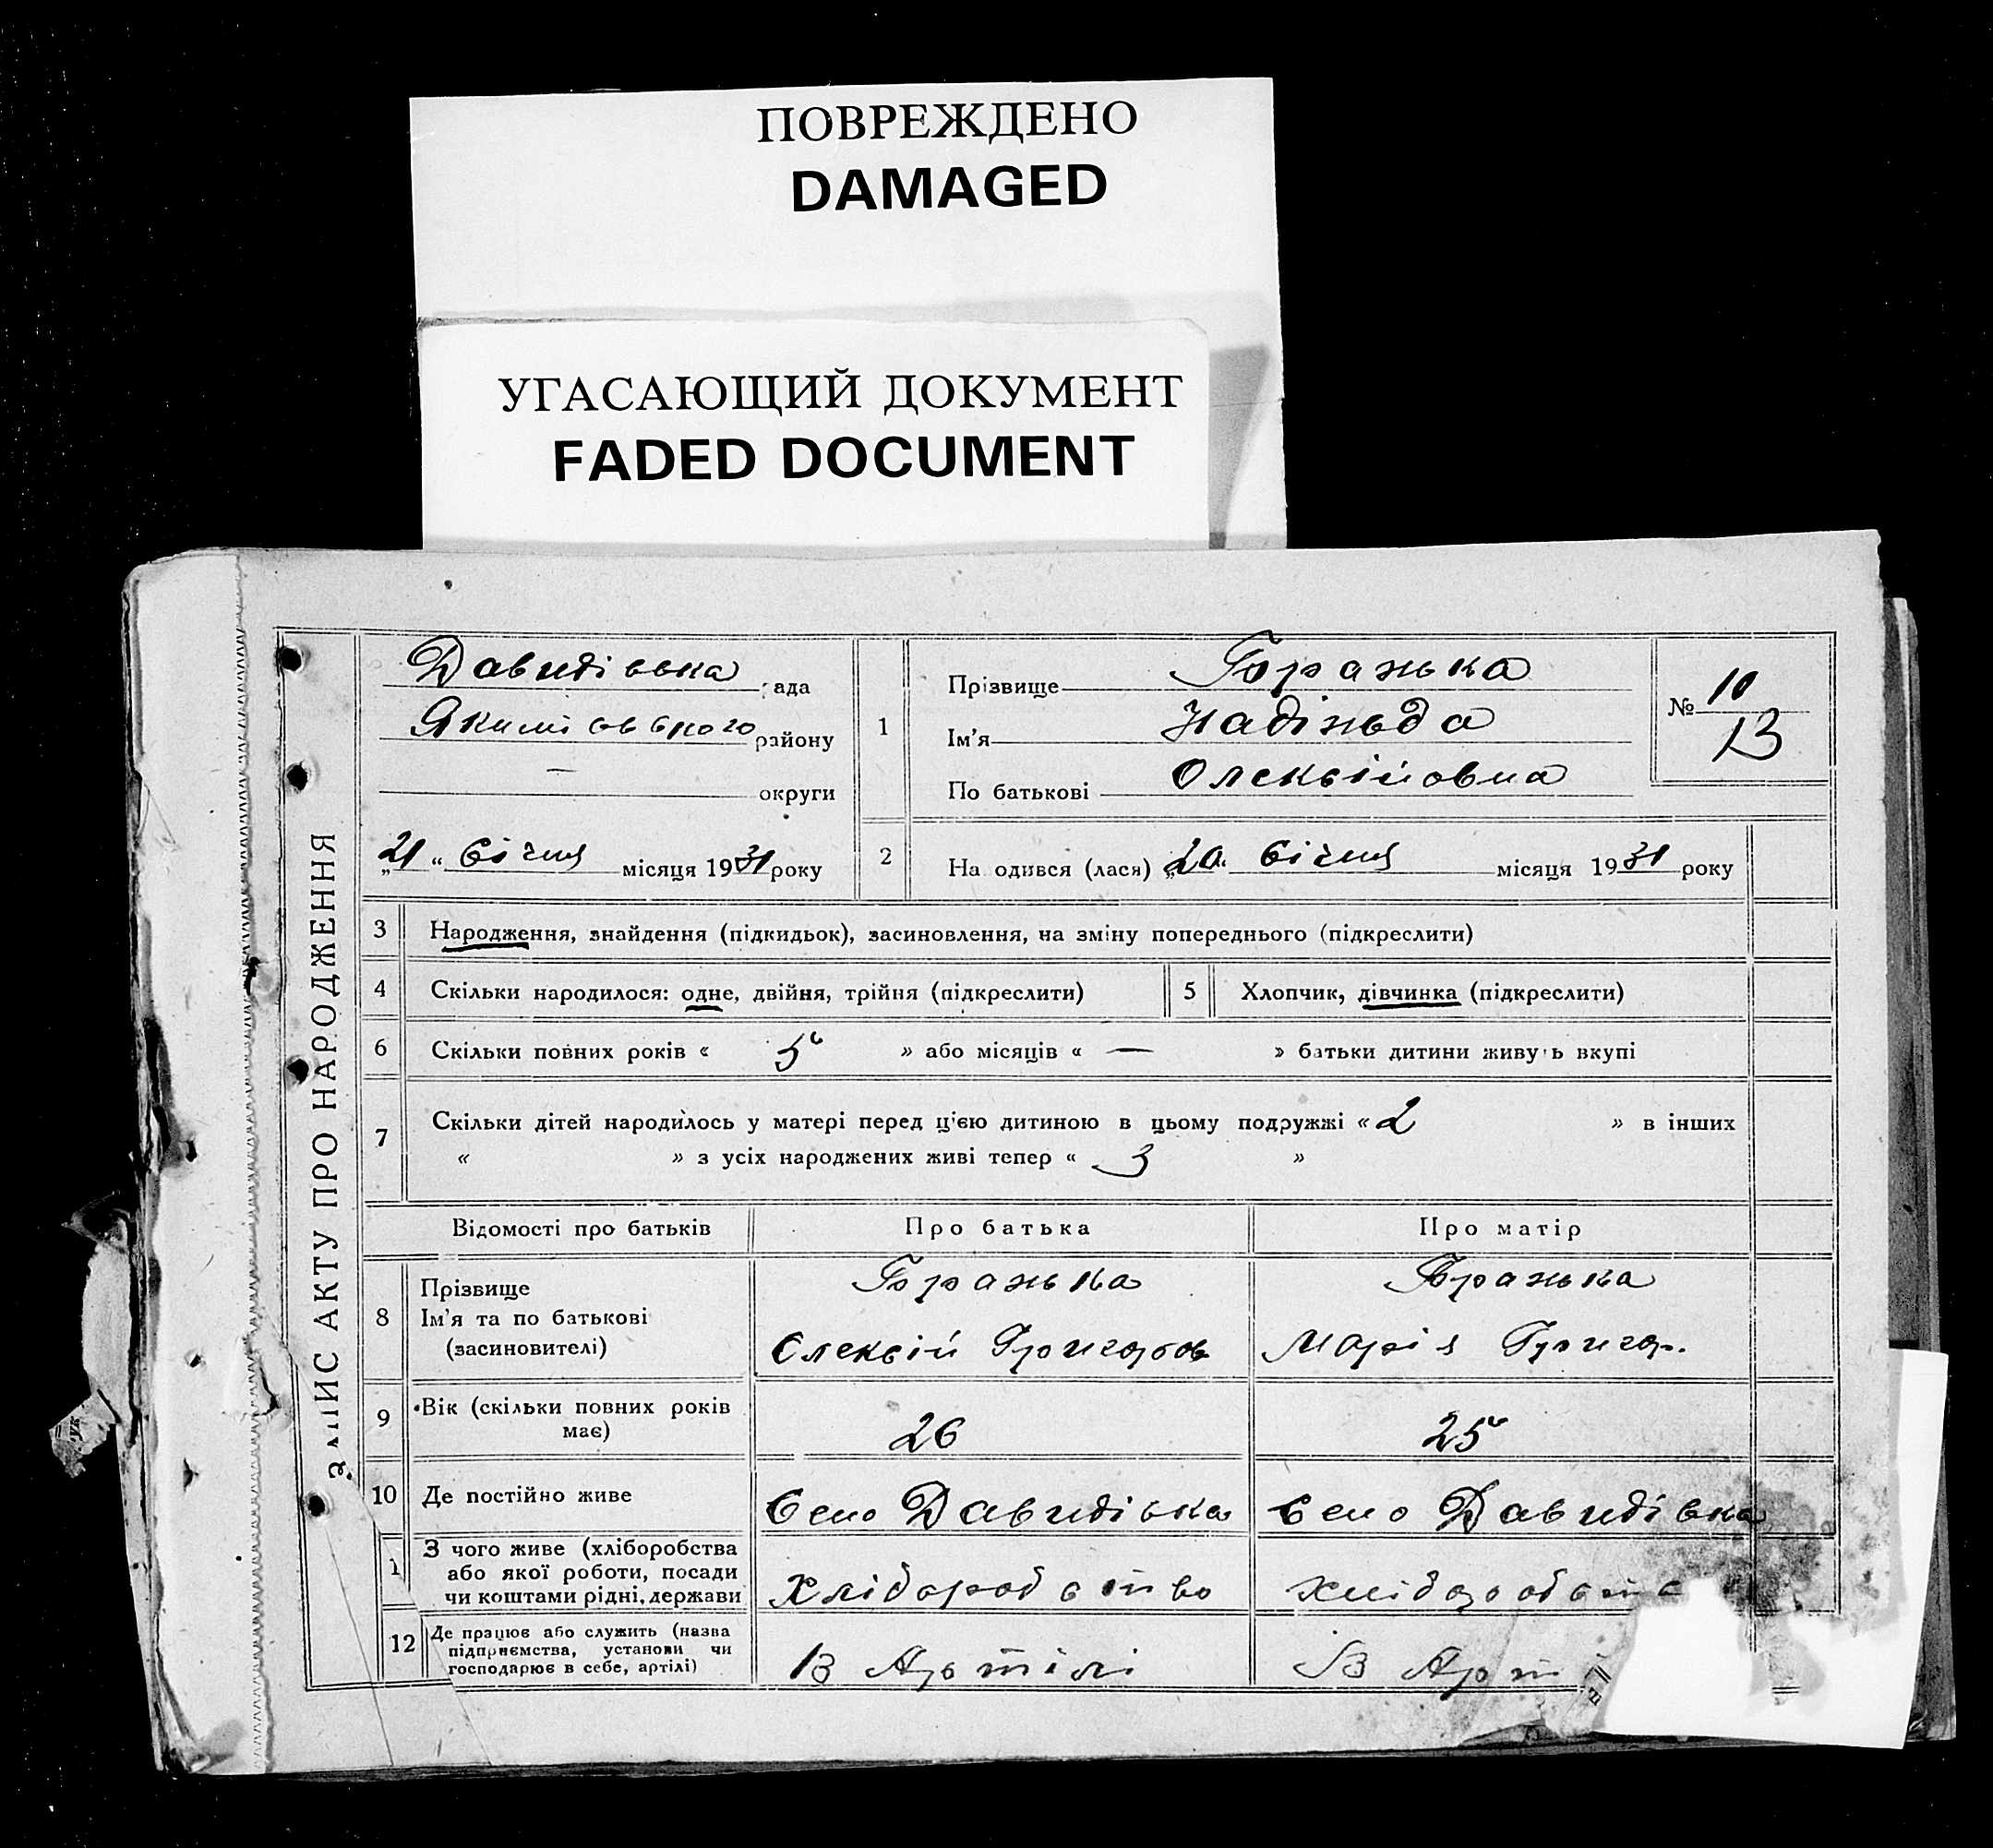 ПОВРЕЖДЕНО
DAMAGED
УГАСАЮЩИЙ ДОКУМЕНТ
FADED DOCUMENT
ЗАПИС АКТУ ПРО НАРОДЖЕННЯ
Давидівська рада
Якимівського району
— округи
„21“ Січня місяця 1931 року
1
Прізвище
Ім'я Надіжда
По батькові Олексійовна
№ 10
13
2 На одився (лася) „20“ Січня місяця 1931 року
3 Народження, знайдення (підкидьок), засиновлення, на зміну попереднього (підкреслити)
4 Скільки народилося: одне, двійня, трійня (підкреслити) 5 Хлопчик, дівчинка (підкреслити)
6 Скільки повних років « 5 » або місяців « — » батьки дитини живуть вкупі
7 Скільки дітей народилось у матері перед цією дитиною в цьому подружжі « 2 » в інших
« » з усіх народжених живі тепер « 3 »
Відомості про батьків Про батька Про матір
8 Прізвище
Ім'я та по батькові
(засиновителі)
Олексій Григоров
Марія Григор.
9 Вік (скільки повних років має) 26 25
10 Де постійно живе Село Давидівка Село Давидівка
1 З чого живе (хліборобства
або якої роботи, посади
чи коштами рідні, держави
Хлібороб ство
хлібороб ст
12 Де працює або служить (назва
підприємства, установи чи
господарює в себе, артілі)
В Артілі
В Арт